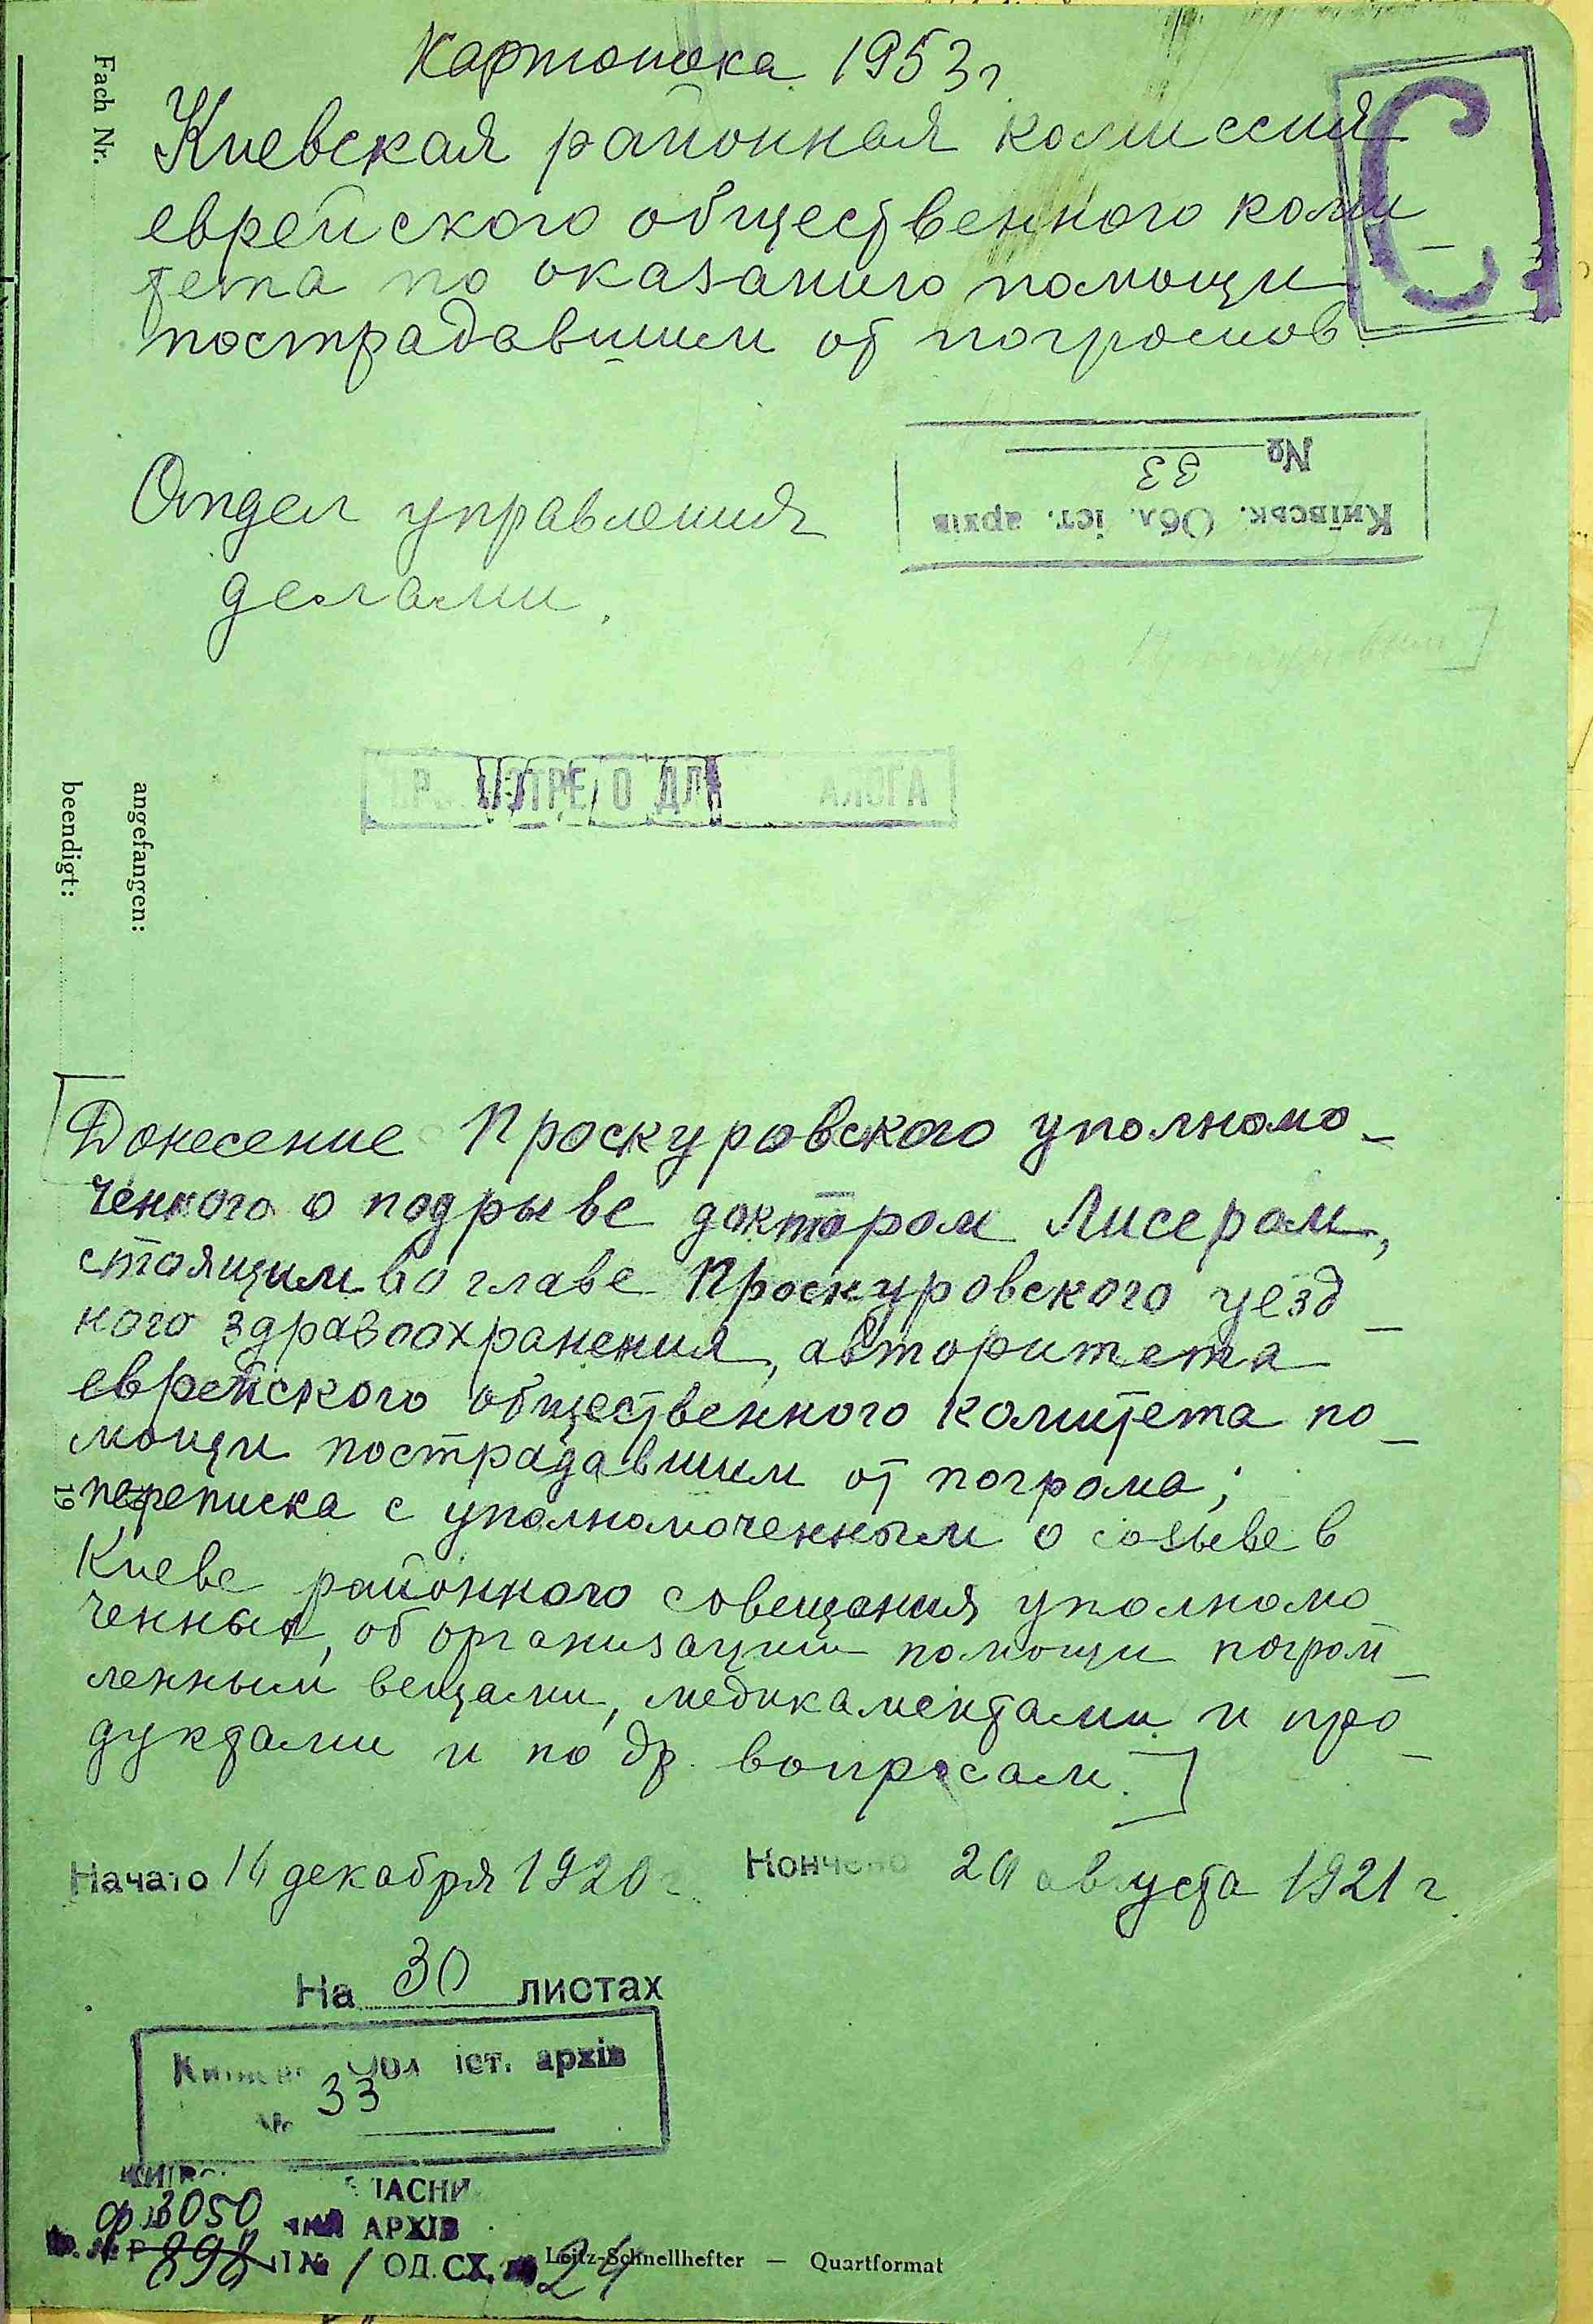 Картотека 1953г
Fach Nr.
Киевская районная комиссия
еврейского общественного коми
тета по оказанию помощи
пострадавшим от погромов
С
№
33
Київськ. Обл. іст. архів
Отдел управления
делами.
angefangen:
beendigt:
Донесение Проскуровского уполномо-
ченного о подрыве доктором Лисером,
стоящим во главе Проскуровского уезд-
ного здравоохранения, авторитета
еврейского общественного комитета по-
мощи пострадавшим от погрома;
19
переписка с уполномоченным о созыве в
Киеве районного совещания уполномо-
ченных, об организации помощи погром-
ленным вещами, медикаментами и про-
дуктами и по др. вопросам.
Начато 14 декабря 1920 г. Кончено августа 1921 г.
На 30 листах
іст. архів
33
АРХІВ
ф 3050
Р 898 1 ОД. СХ. 24
Leitz-Schnellhefter — Quartformat